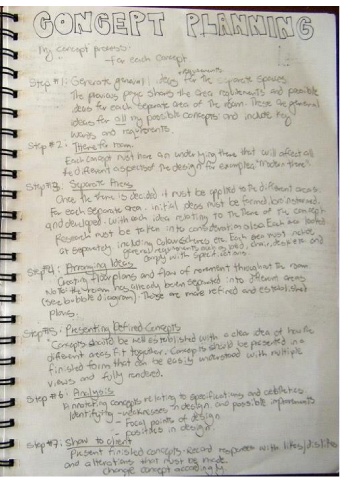 CONCEPT PLANNING
My concept process:
- For each concept.
Step #1: Generate general ideas for the separate spaces.
requirements
The previous page shows the area requirements and possible
ideas for each separate area of the room. These are general
ideas for all my possible concepts and include key
words and requirements.
Step #2: Theme for room.
Each concept must have an underlying theme that will affect all
the different aspects of the design for example: "Modern theme".
Step #3: Separate Areas
Once the theme is decided it must be applied to the different areas.
For each separate area initial ideas must be formed, brainstormed
and developed with each idea relating to the theme of the concept
Research must be taken into consideration also. Each area looked
at separately, including colour schemes etc. Each area must include
general requirements such as bed, drawers, desk etc and
comply with specifications.
Step #4: Arranging Ideas
Creating floor plans and flow of movement throughout the room
Note: the room has already been separated into different areas
(see bubble diagram). These are more refined and established
plans.
Step #5: Presenting Defined Concepts
Concepts should be well established with a clear idea of how the
different areas fit together. Concepts should be presented in a
finished form that can be easily understood with multiple
views and fully rendered.
Step #6: Analysis
Annotating concepts relating to specifications and
Identifying - weaknesses in design, and possible improvements
- Focal points of design
- positives in design.
Step #7: Show to client
Present finished concepts. Record responses with likes/dislikes
and alterations that must be made.
Change concept accordingly.